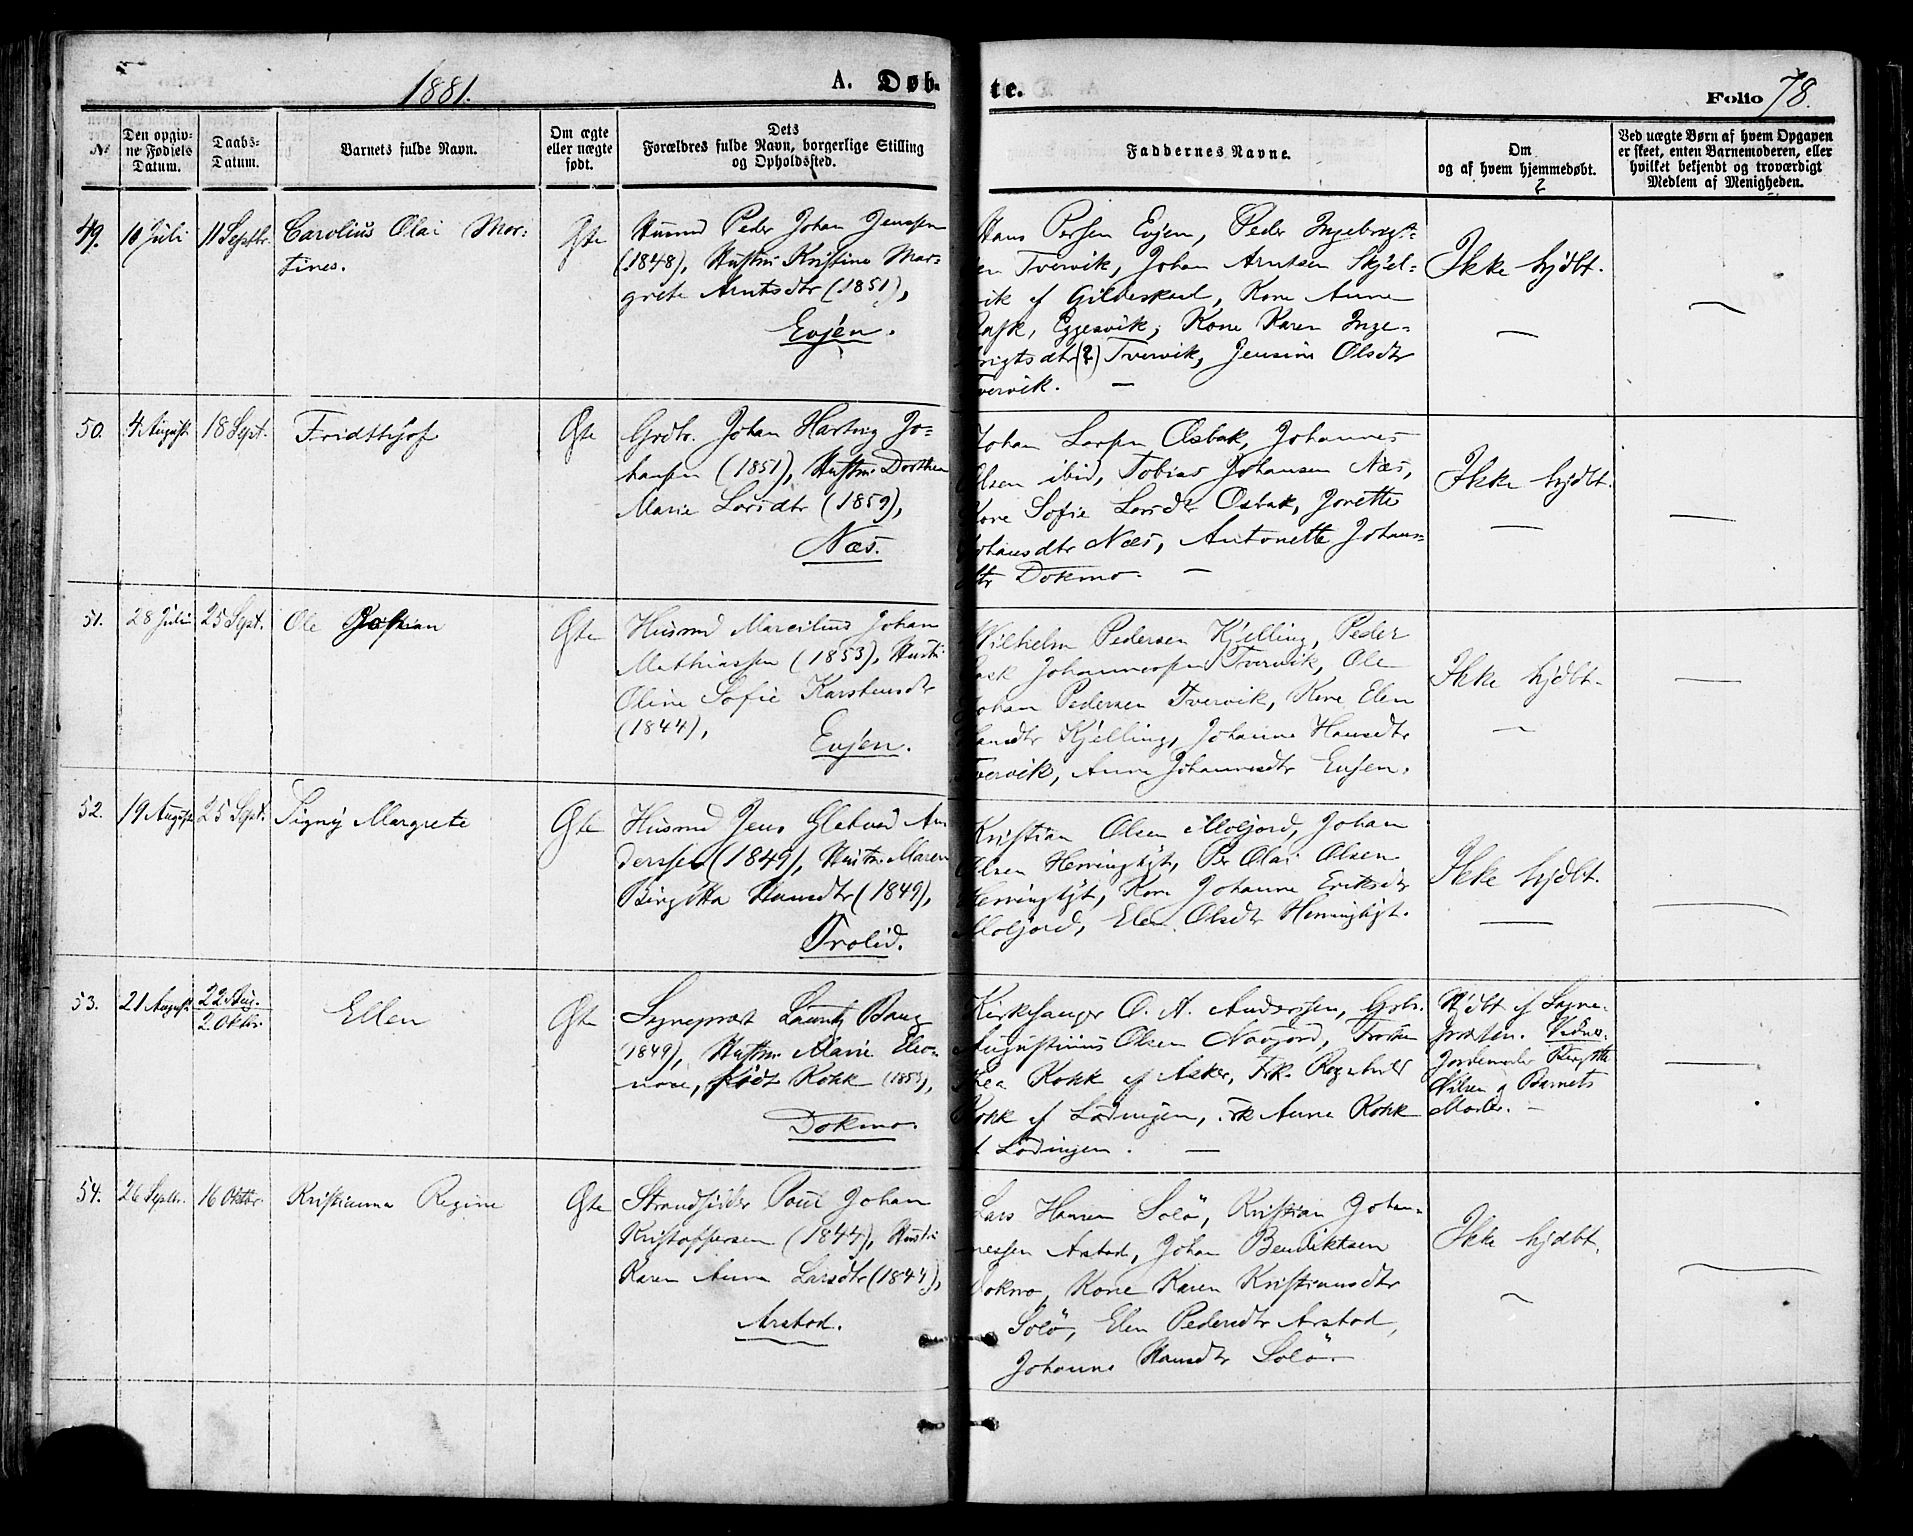 1881.
A. Døb-
te.
Folio 78.
No
Den opgiv-
ne Fødsels
Datum.
Daabs-
Datum.
Barnets fulde Navn.
Om ægte
eller uægte
født.
Dets
Forældres fulde Navn, borgerlige Stilling
og Opholdssted.
Faddernes Navne.
Om
og af hvem hjemmedøbt.
Ved uægte Børn af hvem Opgaven
er skeet, enten Barnemoderen, eller
hvilket bekjendt og troværdigt
Medlem af Menigheden.
49.
10 Juli
11 Septbr.
Carolius Olai Mor-
tines.
Gte
Husmd Peder Johan Jenssen
(1848), Hustru Kristine Mar-
grete Arntsdtr (1851),
Evjen.
Hans Persen Evjen, Peder Ingebrigt-
en Tvervik, Johan Arntsen Skjel-
vik af Gildeskaal, Kone Anne
Rask, Eggesvik, Kone Karen Inge-
brigtsdtr (?) Tvervik, Jensine Olsdtr
Tvervik. —
Ikke hjdbt.
—
50.
4 August
18 Sept.
Fridthjof
Gte
Grdbr. Johan Hartvig Jo-
hansen (1851), Hustru Dorthea
Marie Larsdtr (1859),
Næs.
Johan Larsen Osbak, Johannes
Olsen ibid, Tobias Johansen Næs,
Kone Sofie Larsdtr Osbak, Jorette
Johansdtr Næs, Antonette Johans-
dtr Dokmo. —
Ikke hjdbt.
—
51.
28 Juli
25 Sept.
Ole
Gte
Husmd Marcilius Johan
Mathiassen (1853), Hustru
Oline Sofie Karstensdtr
(1844),
Evjen.
Wilhelm Pedersen Kjelling, Peder
Rask Johannessen Tvervik, Ole
Johan Pedersen Tvervik, Kone Elen
Hansdtr Kjelling, Johanne Hansdtr
Tvervik, Anne Johannesdtr Evjen.
Ikke hjdbt.
—
52.
19 August
25 Sept.
Signy Margrete
Gte
Husmd Jens Glatved An
derssen (1849), Hustru Maren
Birgitta Hansdtr (1849),
Trolid.
Kristian Olsen Moljord, Johan
Olsen Herringbygt, Per Olai Olsen
Herringbygt, Kone Johanne Eriksdtr
Moljord, Elen Olsdtr Herringbygt.
Ikke hjdbt.
—
53.
21 August
22 Aug.
2 Oktbr.
Ellen
Gte
Sogneprest Lauritz Bang
(1849), Hustru Marie Eleo-
nore, født Kokk (1853),
Dokmo.
Kirkesanger O. A. Anderssen, Grbr.
Augustinius Olsen Navjord, Frøken
Thea Kokk af Asker, Frk. Ragnhild
Kokk af Lødingen, Frk Anne Kokk
af Lødingen. —
Hjdbt af Sogne-
presten. Vidner
Jordemoder Birgitte
Nilsen og Barnets
Moder. —
54.
26 Septbr.
16 Oktbr.
Kristianna Regine
Gte
Strandsidder Poul Johan
Kristoffersen (1844), Hustru
Karen Anna Larsdtr (1844),
Arstad.
Lars Hansen Solø, Kristian Johan-
nessen Arstad, Johan Bendiktsen
Dokmo, Kone Karen Kristiansdtr
Solø, Elen Pedersdtr Arstad,
Johanne Hansdtr Solø.
Ikke hjdbt.
—